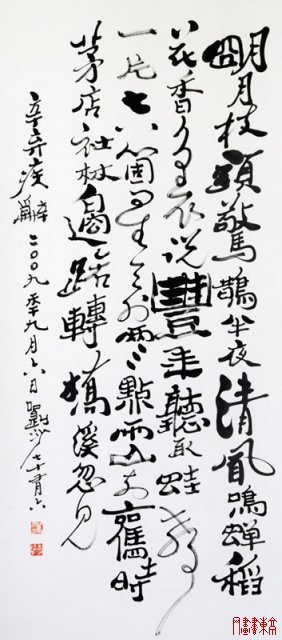 明月枝頭驚鵲半夜清風鳴蟬稻
花香裏說豐年聽取蛙聲
一片七八箇星天外兩三點雨山前舊時
茅店社林邊路轉橋溪忽見
辛弃疾 二〇〇九年九月六日